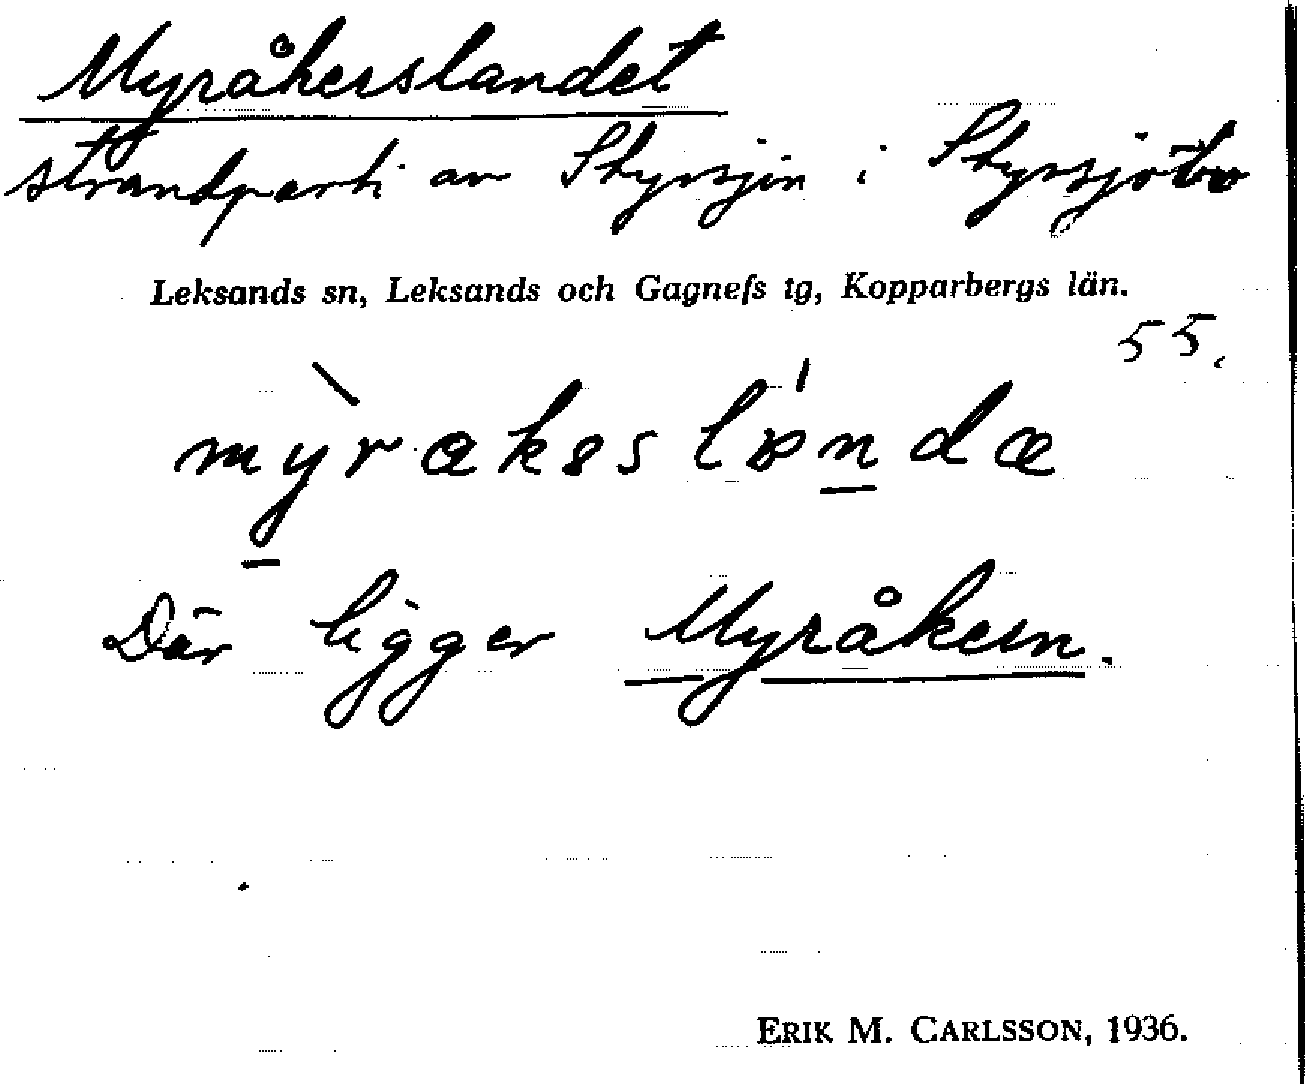 Myråkerslandet
strandparti av Styrsjön i Styrsjöbo
Leksands sn, Leksands och Gagnefs tg, Kopparbergs län.
55.
Där ligger Myråkern.
ERIK M. CARLSSON, 1936.